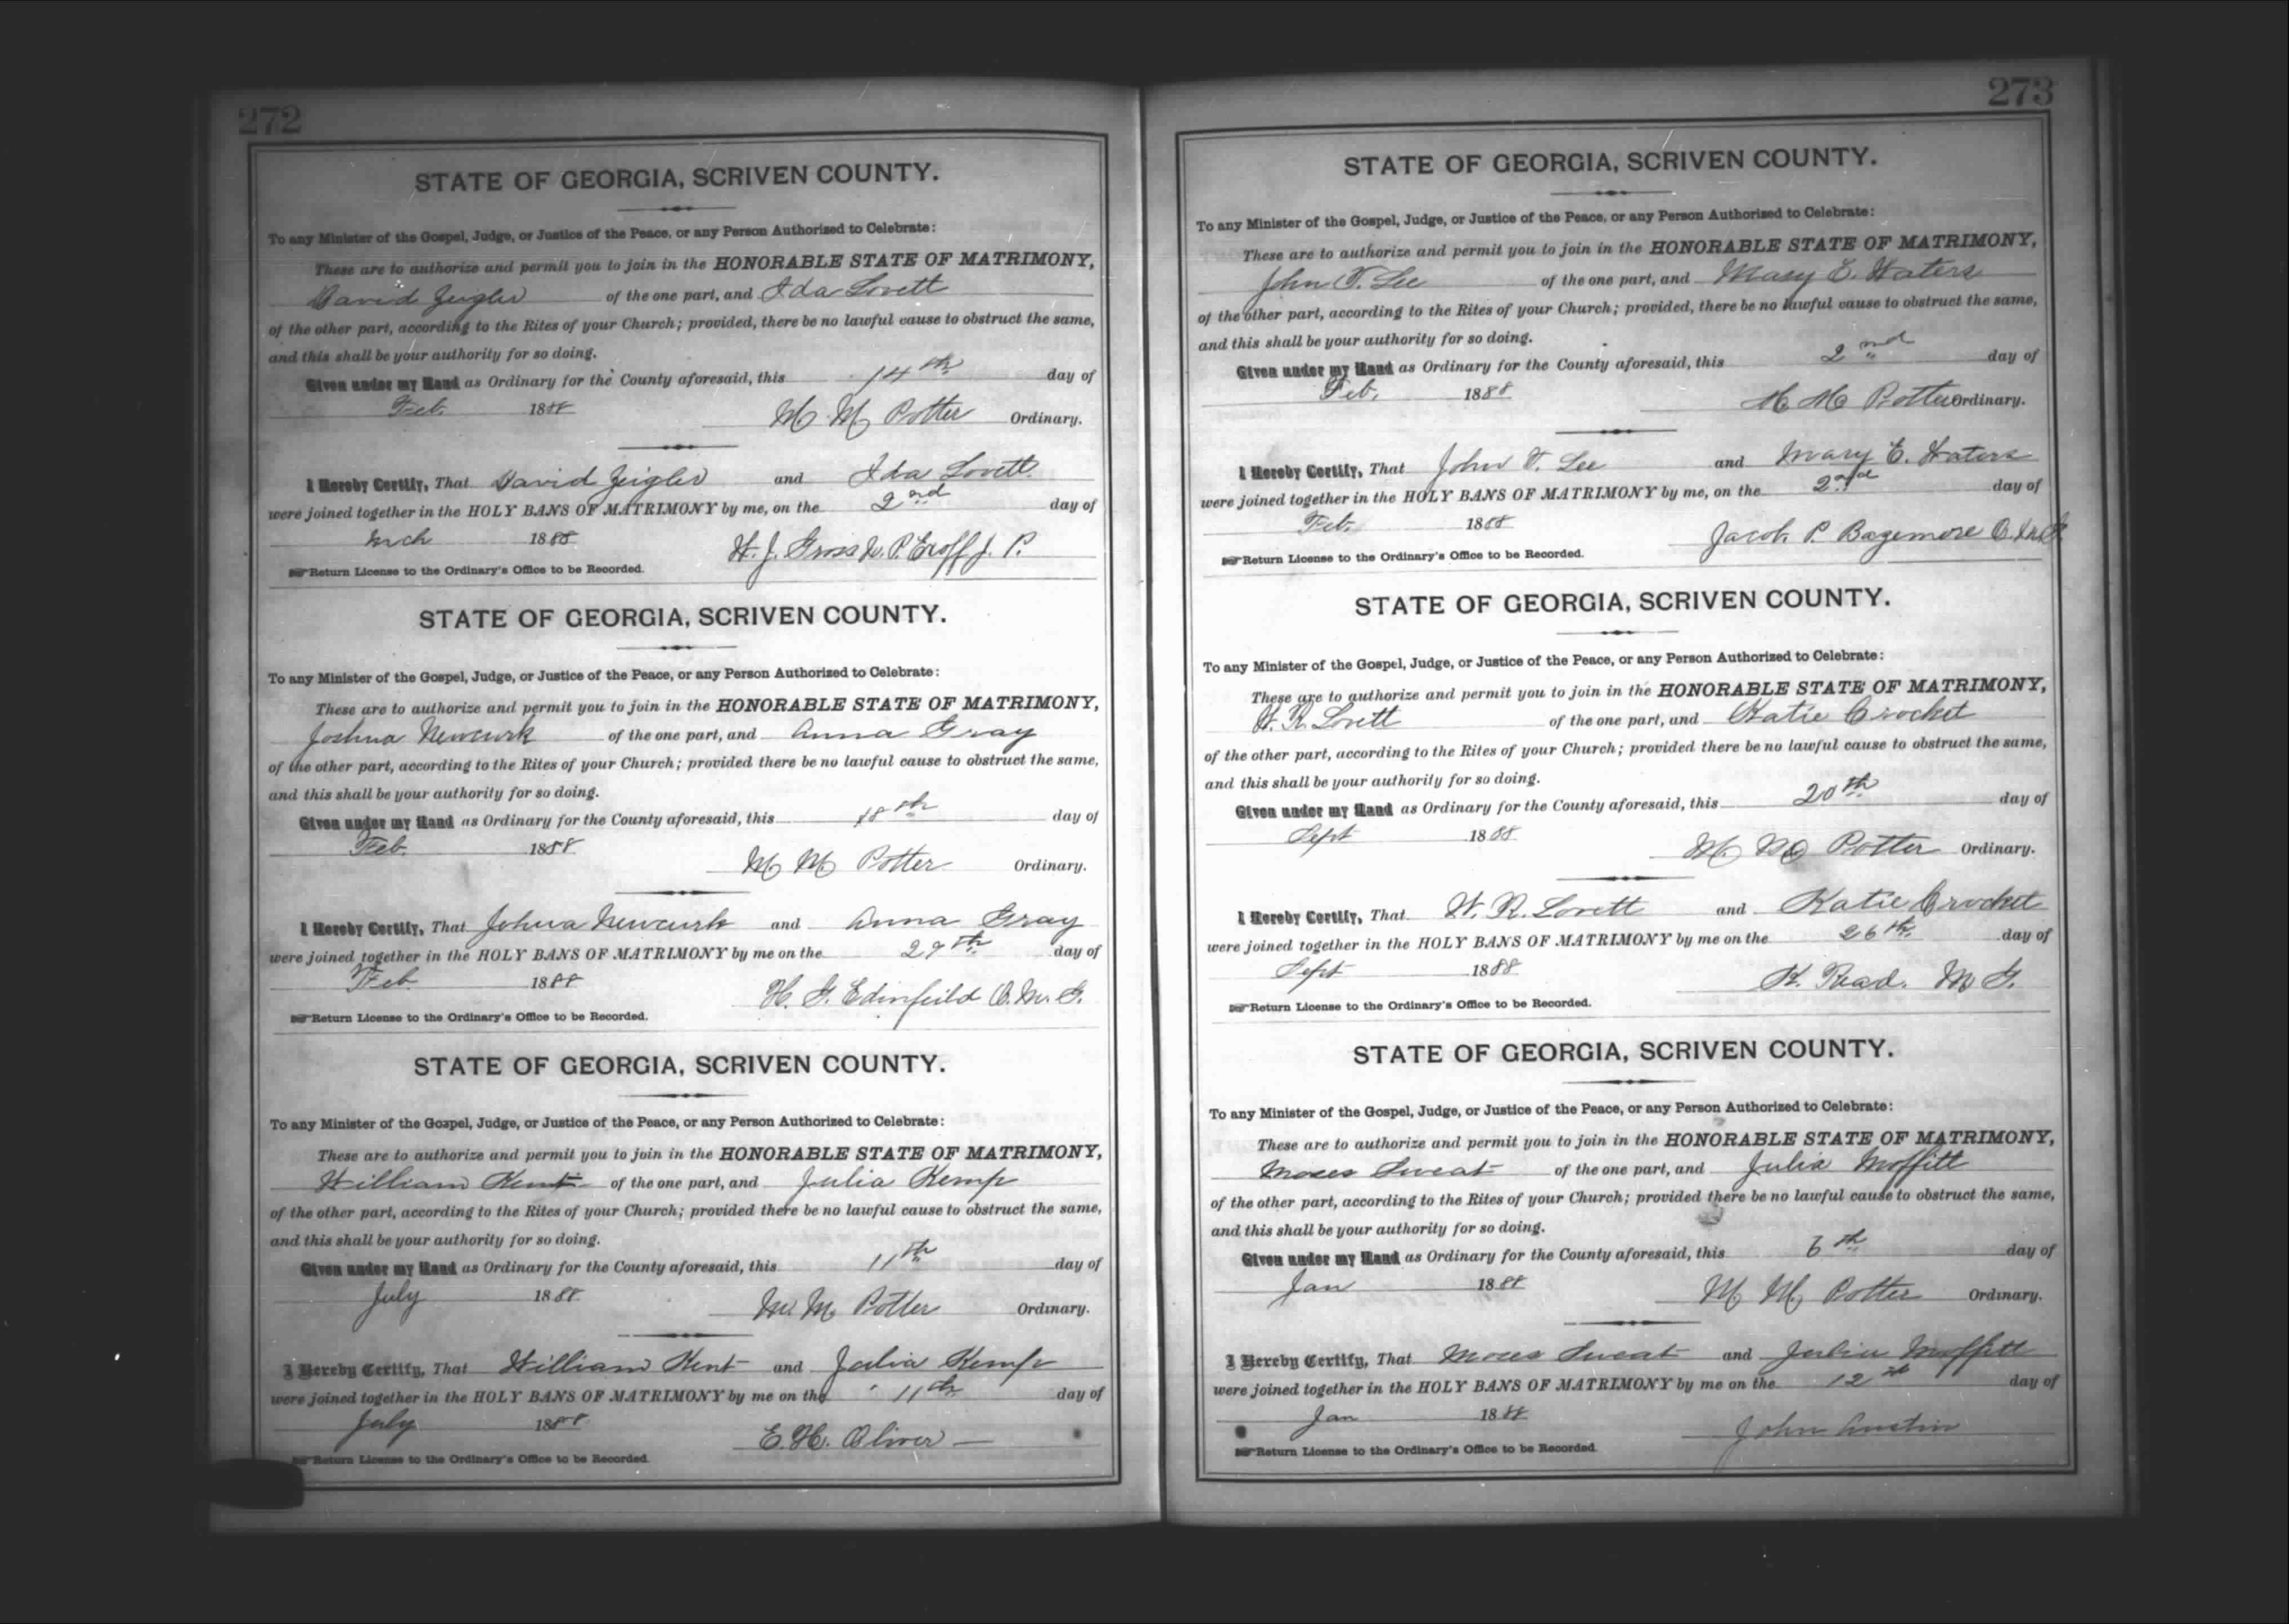 272
STATE OF GEORGIA, SCRIVEN COUNTY.
To any Minister of the Gospel, Judge, or Justice of the Peace, or any Person Authorized to Celebrate:
These are to authorize and permit you to join in the HONORABLE STATE OF MATRIMONY,
David Zeigler of the one part, and Ida Lovett
of the other part, according to the Rites of your Church; provided, there be no lawful cause to obstruct the same,
and this shall be your authority for so doing.
Given under my Hand as Ordinary for the County aforesaid, this 14th day of
Feb. 1888
M M Potter Ordinary.
I Hereby Certify, That David Zeigler and Ida Lovett
were joined together in the HOLY BANS OF MATRIMONY by me, on the 2nd day of
Mch 1888
W. J. Gross N. P. Exoff J. P.
Return License to the Ordinary's Office to be Recorded.
STATE OF GEORGIA, SCRIVEN COUNTY.
To any Minister of the Gospel, Judge, or Justice of the Peace, or any Person Authorized to Celebrate:
These are to authorize and permit you to join in the HONORABLE STATE OF MATRIMONY,
Joshua Newcurk of the one part, and Anna Gray
of the other part, according to the Rites of your Church; provided there be no lawful cause to obstruct the same,
and this shall be your authority for so doing.
Given under my Hand as Ordinary for the County aforesaid, this 18th day of
Feb. 1888
M M Potter Ordinary.
I Hereby Certify, That Johua Newcurk and Anna Gray
were joined together in the HOLY BANS OF MATRIMONY by me on the 29th day of
Feb. 1888
H. G. Edinfield O. M. G.
Return License to the Ordinary's Office to be Recorded.
STATE OF GEORGIA, SCRIVEN COUNTY.
To any Minister of the Gospel, Judge, or Justice of the Peace, or any Person Authorized to Celebrate:
These are to authorize and permit you to join in the HONORABLE STATE OF MATRIMONY,
William Kent of the one part, and Julia Kemp
of the other part, according to the Rites of your Church; provided there be no lawful cause to obstruct the same,
and this shall be your authority for so doing.
Given under my Hand as Ordinary for the County aforesaid, this 11th day of
July 1888
M. M. Potter Ordinary.
I Hereby Certify, That William Kent and Julia Kemp
were joined together in the HOLY BANS OF MATRIMONY by me on the 11th day of
July 1888
E. H. Oliver
Return License to the Ordinary's Office to be Recorded.
273
STATE OF GEORGIA, SCRIVEN COUNTY.
To any Minister of the Gospel, Judge, or Justice of the Peace, or any Person Authorized to Celebrate:
These are to authorize and permit you to join in the HONORABLE STATE OF MATRIMONY,
John T. Lee of the one part, and Mary E. Waters
of the other part, according to the Rites of your Church; provided, there be no lawful cause to obstruct the same,
and this shall be your authority for so doing.
Given under my Hand as Ordinary for the County aforesaid, this 2nd day of
Feb. 1888
M M Potter Ordinary.
I Hereby Certify, That John T. Lee and Mary E. Waters
were joined together in the HOLY BANS OF MATRIMONY by me, on the 2nd day of
Feb. 1888
Jacob P. Bazemore O. M. G.
Return License to the Ordinary's Office to be Recorded.
STATE OF GEORGIA, SCRIVEN COUNTY.
To any Minister of the Gospel, Judge, or Justice of the Peace, or any Person Authorized to Celebrate:
These are to authorize and permit you to join in the HONORABLE STATE OF MATRIMONY,
W. R. Lovett of the one part, and Katie Crocket
of the other part, according to the Rites of your Church; provided there be no lawful cause to obstruct the same,
and this shall be your authority for so doing.
Given under my Hand as Ordinary for the County aforesaid, this 20th day of
Sept 1888
M M Potter Ordinary.
I Hereby Certify, That W. R. Lovett and Katie Crocket
were joined together in the HOLY BANS OF MATRIMONY by me on the 26th day of
Sept 1888
K. Read. M G.
Return License to the Ordinary's Office to be Recorded.
STATE OF GEORGIA, SCRIVEN COUNTY.
To any Minister of the Gospel, Judge, or Justice of the Peace, or any Person Authorized to Celebrate:
These are to authorize and permit you to join in the HONORABLE STATE OF MATRIMONY,
Moses Sweat of the one part, and Julia Moffitt
of the other part, according to the Rites of your Church; provided there be no lawful cause to obstruct the same,
and this shall be your authority for so doing.
Given under my Hand as Ordinary for the County aforesaid, this 6th day of
Jan 1888
M M Potter Ordinary.
I Hereby Certify, That Moses Sweat and Julia Moffitt
were joined together in the HOLY BANS OF MATRIMONY by me on the 12th day of
Jan 1888
John Austin
Return License to the Ordinary's Office to be Recorded.